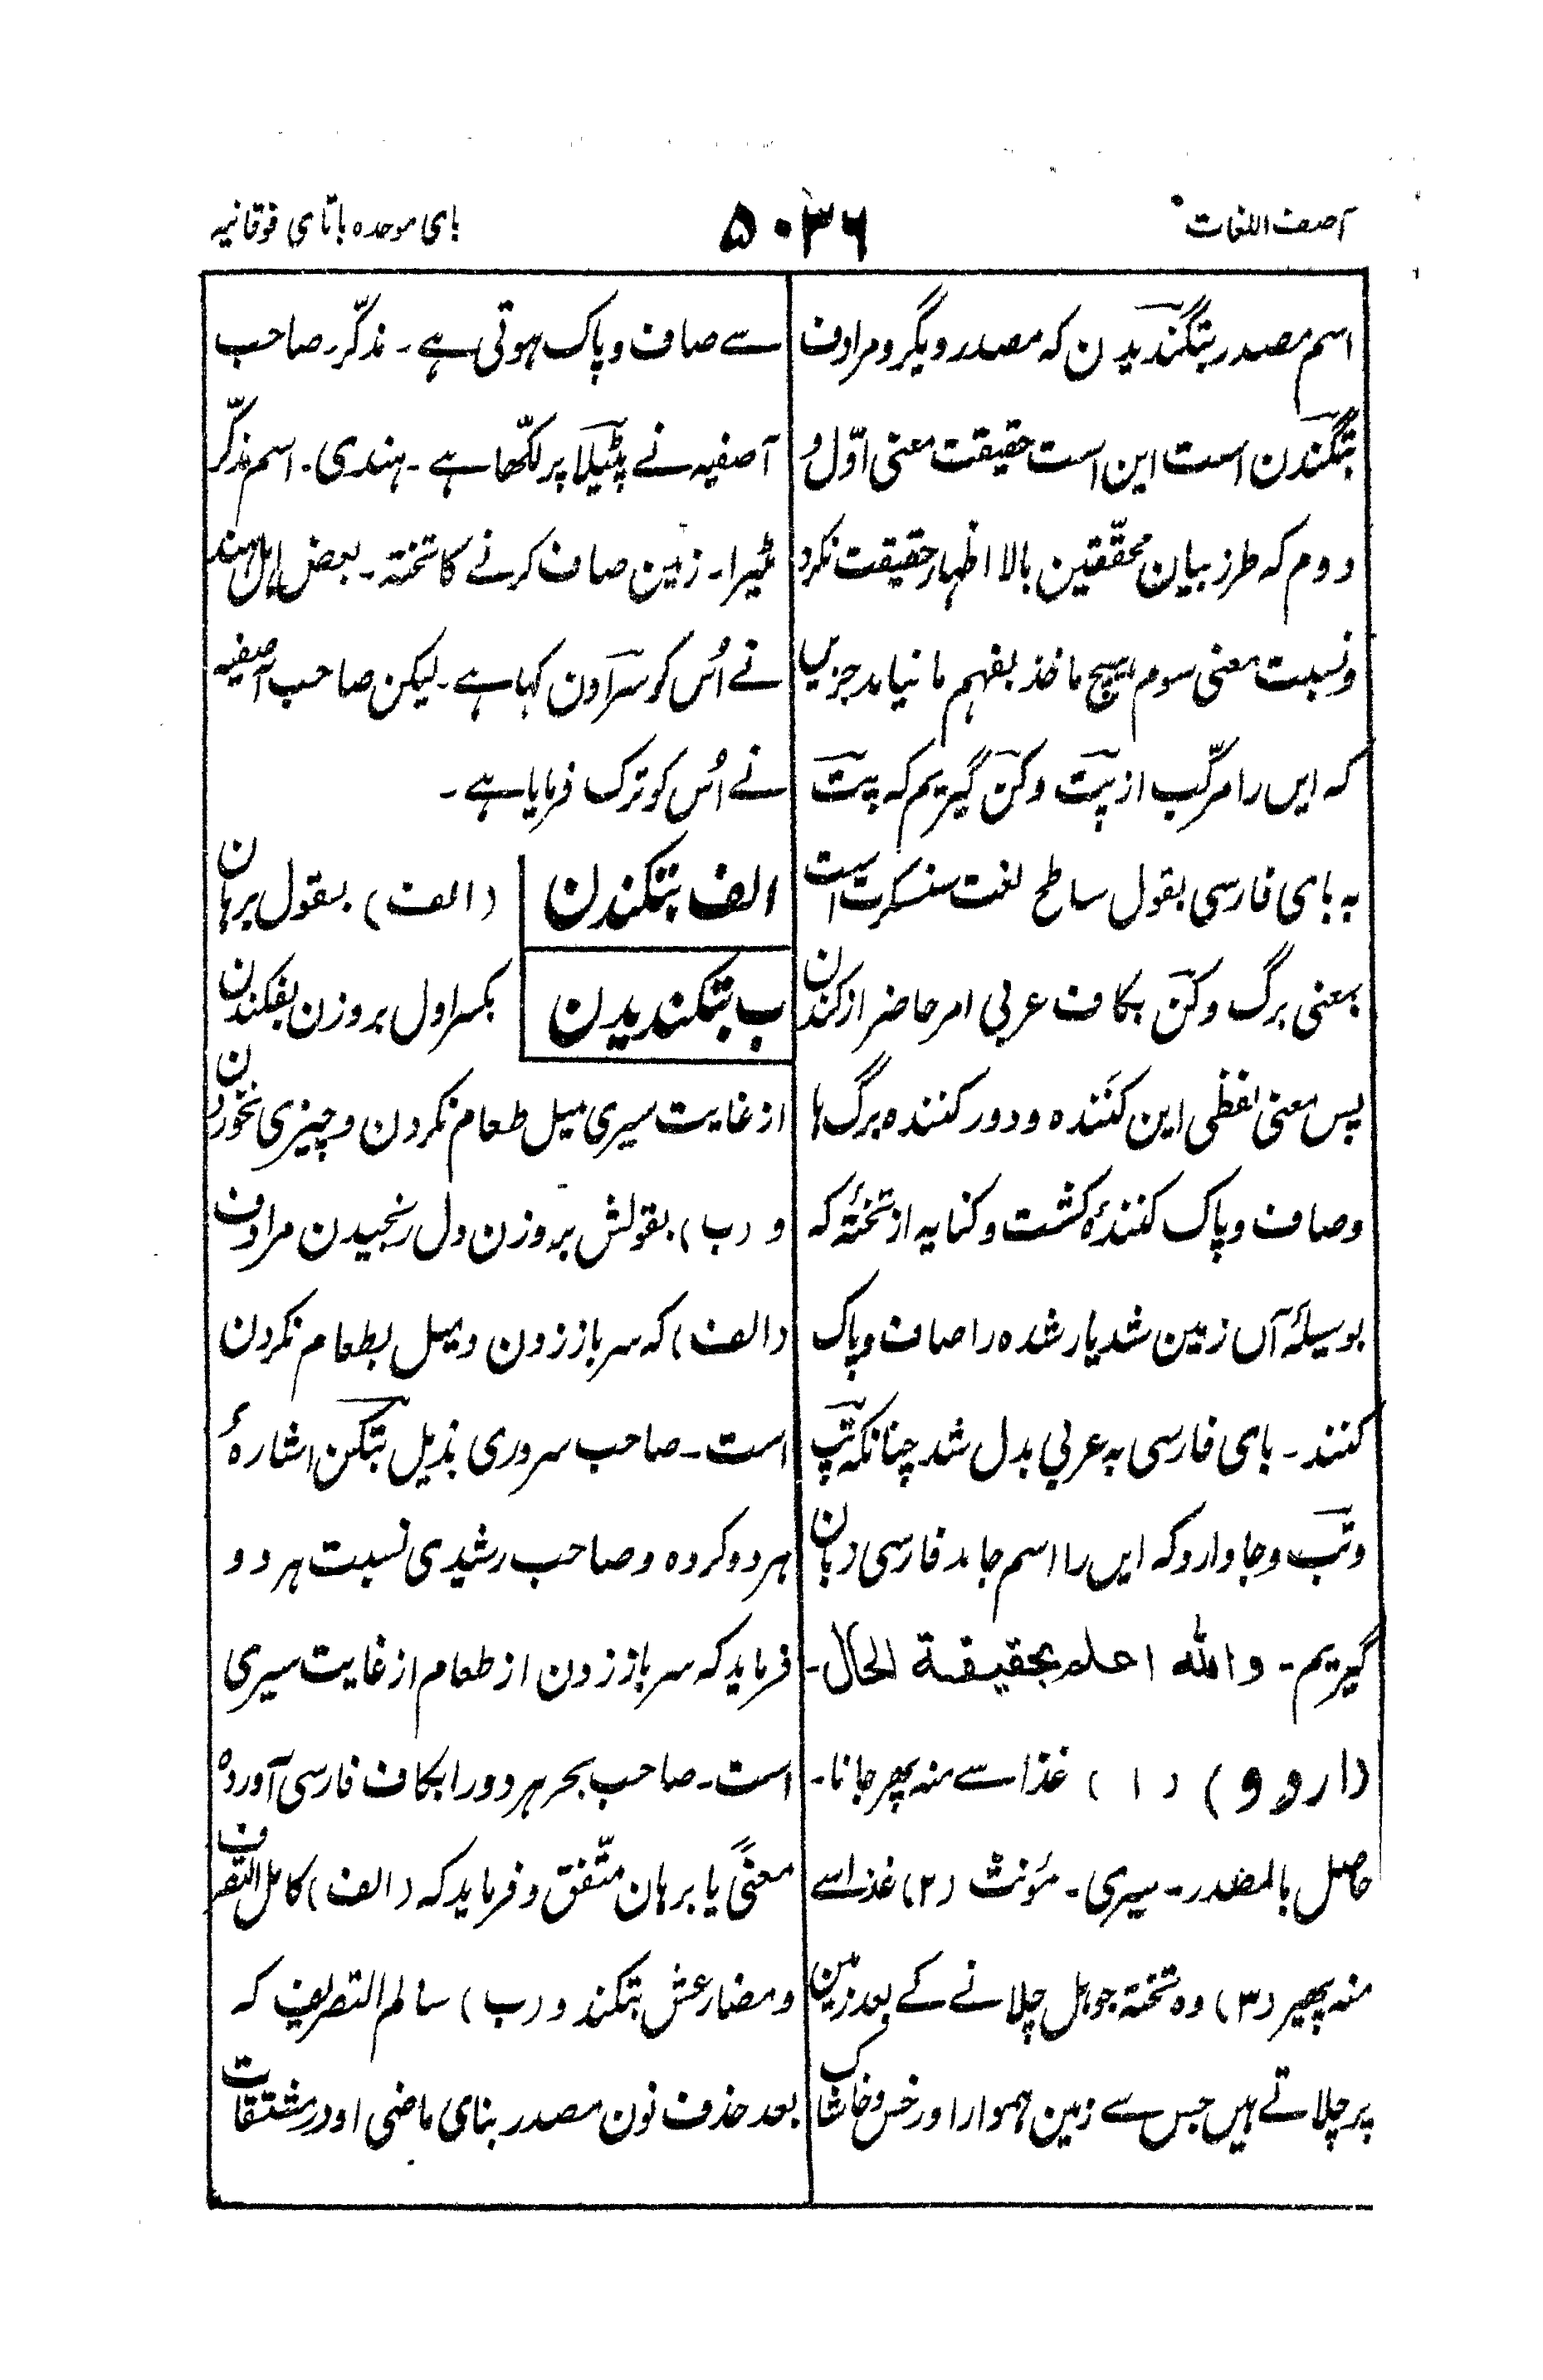 آصف اللغات
۵۰۳۶
بای موحده باتای فوقانیه
اسم مصدر بتگندیدن که مصدر دیگر و مرادف
بتگندن است این است حقیقت معنی اوّل و
دوم که طرز بیان محققّین بالا اظهار حقیقت نکرد
و نسبت معنی سوم هیچ ماخذ بفهم ما نیامد جزیں
که ایں را مرکّب از پت و کن گیریم که پت
به بای فارسی بقول ساطع لغت سنسکرت است
بمعنی برگ و کن بکاف عربی امر حاضر از کندن
پس معنی لفظی این کَننده و دور کننده برگ ها
و صاف و پاک کنندهٔ کشت و کنایه از تختهٔ که
بوسیلهٔ آں زمین شدیار شده را صاف و پاک
کنند ۔ بای فارسی به عربی بدل شد چنانکه تپ
و تب و جا دارد که ایں را اسم جامد فارسی زبان
گیریم ۔ والله اعلم بحقیقة الحال ۔
(اردو) (۱) غذا سے منہ پھر جانا ۔
حاصل بالمصدر ۔ سیری ۔ مؤنث (۲) غذا سے
منہ پھیر (۳) وہ تختہ جو ہل چلانے کے بعد زمین
پر چلاتے ہیں جس سے زمین ہموار اور خس و خاشاک
سے صاف و پاک ہوتی ہے ۔ مذکّر ۔ صاحب
آصفیہ نے پٹیلا پر لکّھا ہے ۔ ہندی ۔ اسم مذکّر
پٹیرا ۔ زمین صاف کرنے کا تختہ ۔ بعض اہل ہند
نے اُس کو سراون کہا ہے ۔ لیکن صاحب آصفیہ
نے اُس کو ترک فرمایا ہے ۔
الف بتکندن (الف) بقول برهان
ب بتکندیدن بکسر اول بر وزن بفکندن
از غایت سیری میل طعام نکردن و چیزی نخوردن
و (ب) بقولش بر وزن دل رنجیدن مرادف
(الف) که سر باز زدن و میل بطعام نکردن
است ۔ صاحب سروری بذیل بتکن اشارهٔ
هر دو کرده و صاحب رشیدی نسبت هر دو
فرماید که سر باز زدن از طعام از غایت سیری
است ۔ صاحب بحر هر دو را بکاف فارسی آورده
معنیً با برهان متّفق و فرماید که (الف) کامل التصریف
و مضارعش بتکند و (ب) سالم التصریف که
بعد حذف نون مصدر بنای ماضی اور مشتقات